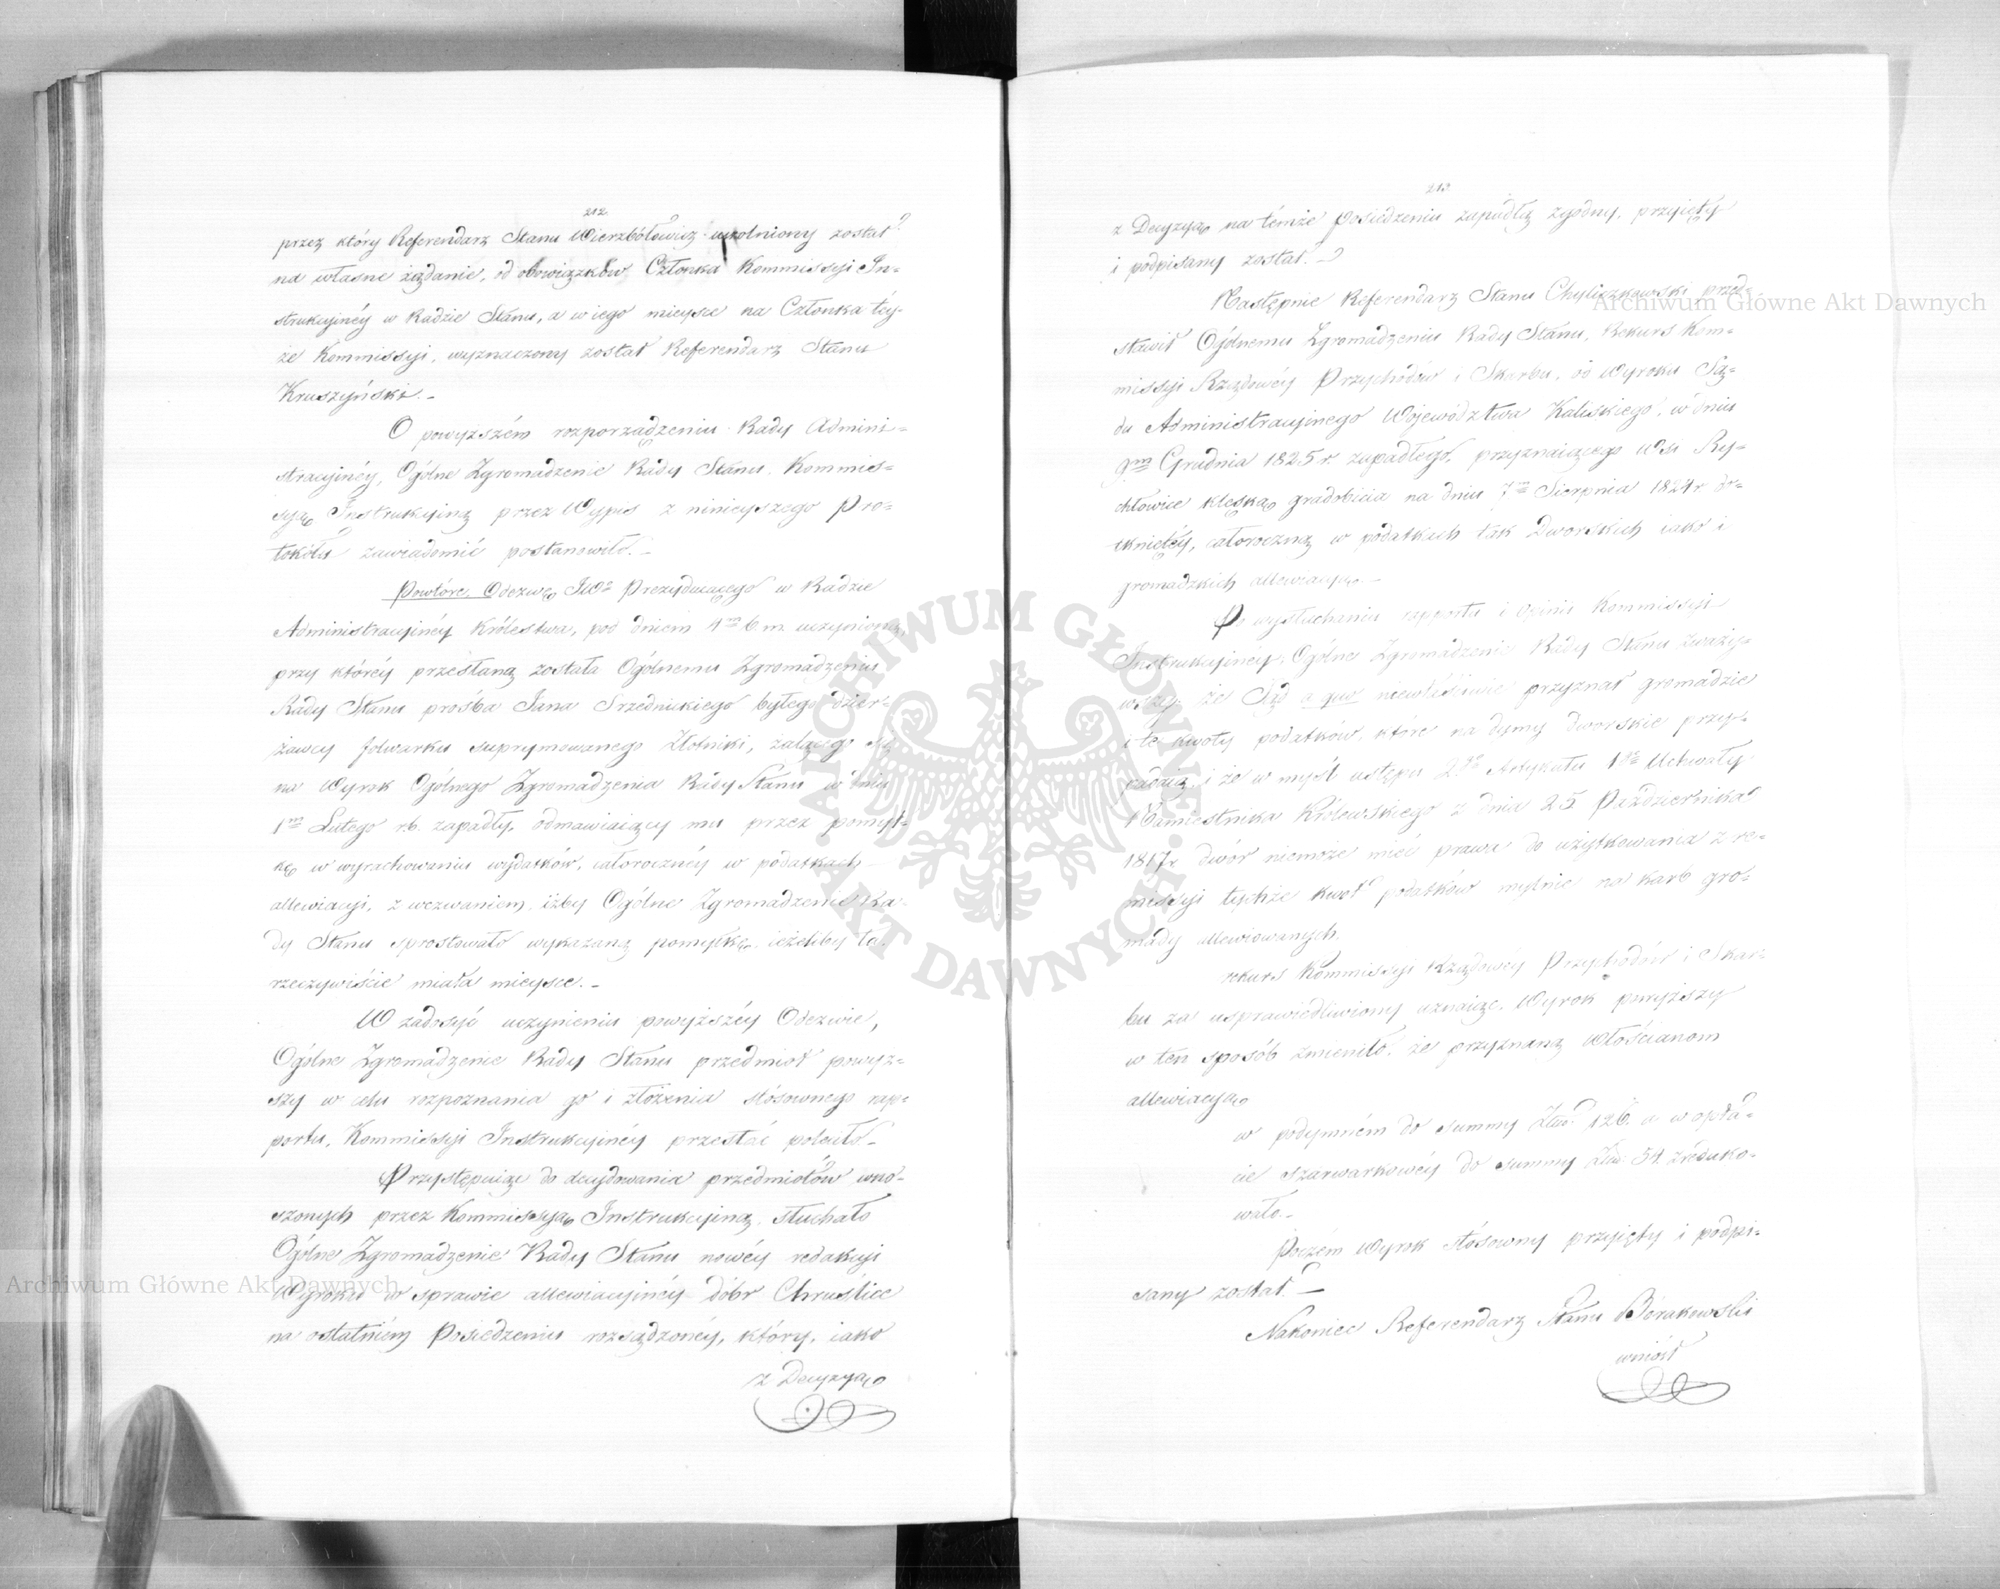 212.
przez który Referendarz Stanu Wierzbółowicz uwolniony został
na własne żądanie, od obowiązków Członka Kommissyi In-
strukcyinéy w Radzie Stanu, a w iego mieysce na Członka téy-
że Kommissyi, wyznaczony został Referendarz Stanu
Kruszyński. -
O powyższém rozporządzeniu Rady Admini-
stracyinéy, Ogólne Zgromadzenie Rady Stanu Kommis-
syą Instrukcyiną przez Wypis z ninieyszego Pro-
tokółu zawiadomić postanowiło. -
Powtóre. Odezwę JWo Prezyduiącego w Radzie
Administracyinéy Królestwa, pod dniem 4m b. m. uczynioną,
przy któréy przesłaną została Ogólnemu Zgromadzeniu
Rady Stanu prośba Jana Srzednickiego byłego dzier-
żawcy folwarku suprymowanego Złotniki, żalącego się
na Wyrok Ogólnego Zgromadzenia Rady Stanu w dniu
1m Lutego r. b. zapadły, odmawiaiący mu przez pomył-
kę w wyrachowaniu wydatków, całorocznéy w podatkach
allewiacyi, z wezwaniem, iżby Ogólne Zgromadzenie Ra-
dy Stanu sprostowało wykazaną pomyłkę, ieżeliby ta
rzeczywiście miała mieysce. -
W zadosyć uczynieniu powyższéy Odezwie,
Ogólne Zgromadzenie Rady Stanu przedmiot powyż-
szy w celu rozpoznania go i złożenia stósownego rap-
portu, Kommissyi Instrukcyinéy przesłać poleciło. -
Przystępuiąc do decydowania przedmiotów wno-
szonych przez Kommissyą Instrukcyiną, słuchało
Ogólne Zgromadzenie Rady Stanu nowéy redakcyi
Wyroku w sprawie allewiacyinéy dóbr Chruślice
na ostatniém Posiedzeniu rozsądzonéy, który, iako
z Decyzyą
213.
z Decyzyą na témże Posiedzeniu zapadłą zgodny, przyięty
i podpisany został. -
Następnie Referendarz Stanu Chyliczkowski przed-
stawił Ogólnemu Zgromadzeniu Rady Stanu, Rekurs Kom-
missyi Rządowéy Przychodów i Skarbu, od Wyroku Są-
du Administracyinego Województwa Kaliskiego, w dniu
9m Grudnia 1825 r. zapadłego, przyznaiącego Wsi Ry-
chłowice klęską gradobicia na dniu 7m Sierpnia 1824 r. do-
tkniętéy, całoroczną w podatkach tak Dworskich iako i
gromadzkich allewiacyą. -
Po wysłuchaniu rapportu i opinii Kommissyi
Instrukcyinéy, Ogólne Zgromadzenie Rady Stanu zważy-
wszy: że Sąd a quo niewłaściwie przyznał gromadzie
i te kwoty podatków, które na dymy dworskie przy-
padaią, i że w myśl ustępu 2go Artykułu 1go Uchwały
Namiestnika Królewskiego z dnia 25 Października
1817 r. dwór niemoże mieć prawa do użytkowania z re-
missyi tychże kwot podatków mylnie na karb gro-
mady allewiowanych.
rekurs Kommissyi Rządowéy Przychodów i Skar-
bu za usprawiedliwiony uznaiąc, Wyrok powyższy
w ten sposób zmieniło, że przyznaną Włościanom
allewiacyą
w podymném do summy Złp. 126. a w opła-
cie szarwarkowéy do summy Złp. 54 zreduko-
wało. -
Poczém Wyrok stósowny przyięty i podpi-
sany został. -
Nakoniec Referendarz Stanu Borakowski
wniósł
ARCHIWUM GŁÓWNE
AKT DAWNYCH
Archiwum Główne Akt Dawnych
Archiwum Główne Akt Dawnych